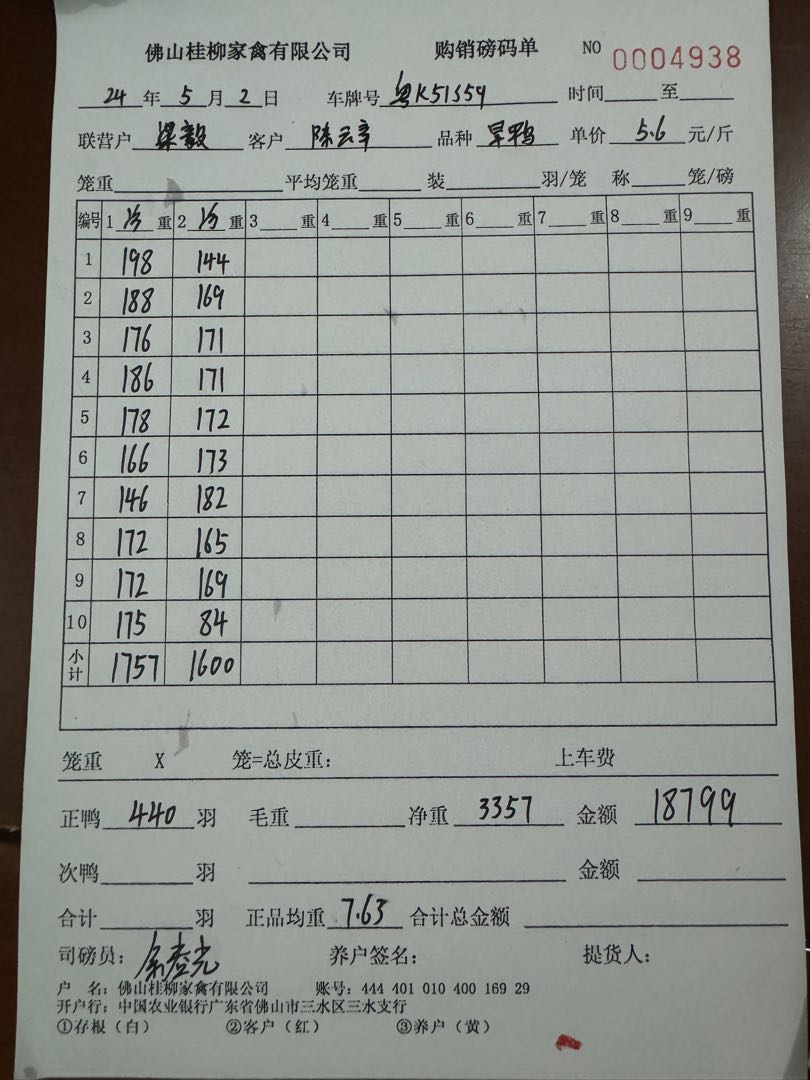 佛山桂柳家禽有限公司 购销磅码单 NO 0004938
24 年 5 月 2 日 车牌号 粤K51S59 时间 至
联营户 梁毅 客户 陈云辛 品种 旱鸭 单价 5.6 元/斤
笼重 平均笼重 装 羽/笼 称 笼/磅
编号 1 重 2 重 3 重 4 重 5 重 6 重 7 重 8 重 9 重
1 198 144
2 188 169
3 176 171
4 186 171
5 178 172
6 166 173
7 146 182
8 172 165
9 172 169
10 175 84
小计 1757 1600
笼重 X 笼=总皮重： 上车费
正鸭 440 羽 毛重 净重 3357 金额 18799
次鸭 羽 金额
合计 羽 正品均重 7.63 合计总金额
司磅员： 养户签名： 提货人：
户 名：佛山桂柳家禽有限公司 账号：444 401 010 400 169 29
开户行：中国农业银行广东省佛山市三水区三水支行
①存根（白） ②客户（红） ③养户（黄）